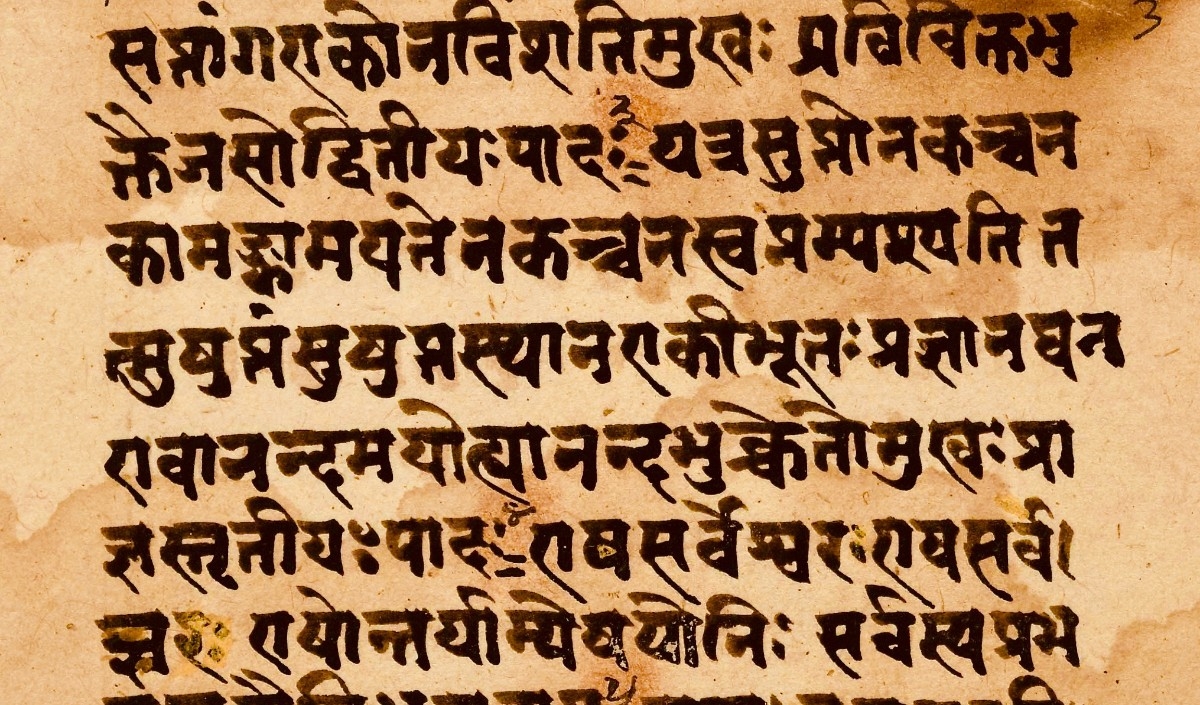 सप्तांगएकोनविंशतिमुखः प्रविविक्तभु
क्तैजसोद्वितीयःपादः २ यत्रसुप्तोनकञ्चन
कामङ्कामयतेनकञ्चनस्वप्नम्पश्यति त
त्सुषुप्तंसुषुप्तस्थानएकीभूतःप्रज्ञानघन
एवानन्दमयोह्यानन्दभुक्चेतोमुखःप्रा
ज्ञस्तृतीयःपादः एषसर्वेश्वरःएषसर्व।
ज्ञः एषोन्तर्याम्येषयोनिः सर्वस्यप्रभ